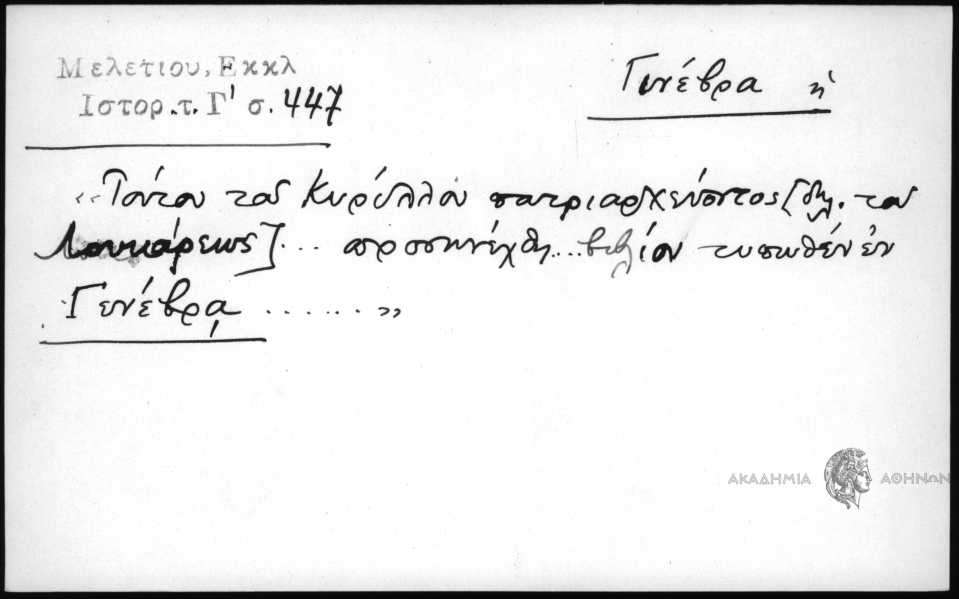 Μελετιου, Εκκλ
Ιστορ. τ. Γ' σ. 447
Γενέβρα ἡ
«Τούτου τοῦ Κυρίλλου πατριαρχεύοντος [δηλ. τοῦ
Λουκάρεως] ... προσηνέχθη .... βιβλίον τυπωθὲν ἐν
Γενέβρᾳ ...... »
ΑΚΑΔΗΜΙΑ ΑΘΗΝΩΝ